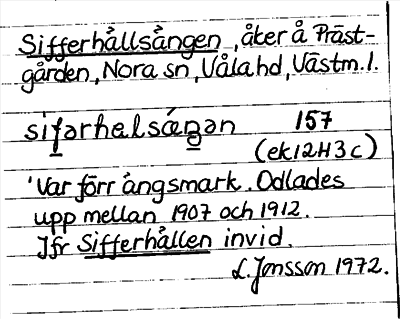 Sifferhållsängen, åker å Präst-
gården, Nora sn, Våla hd, Västm. l.
sifərhalsæŋən 157
(ek 12H3c)
'Var förr ängsmark. Odlades
upp mellan 1907 och 1912.
Jfr Sifferhållen invid.
L. Jonsson 1972.